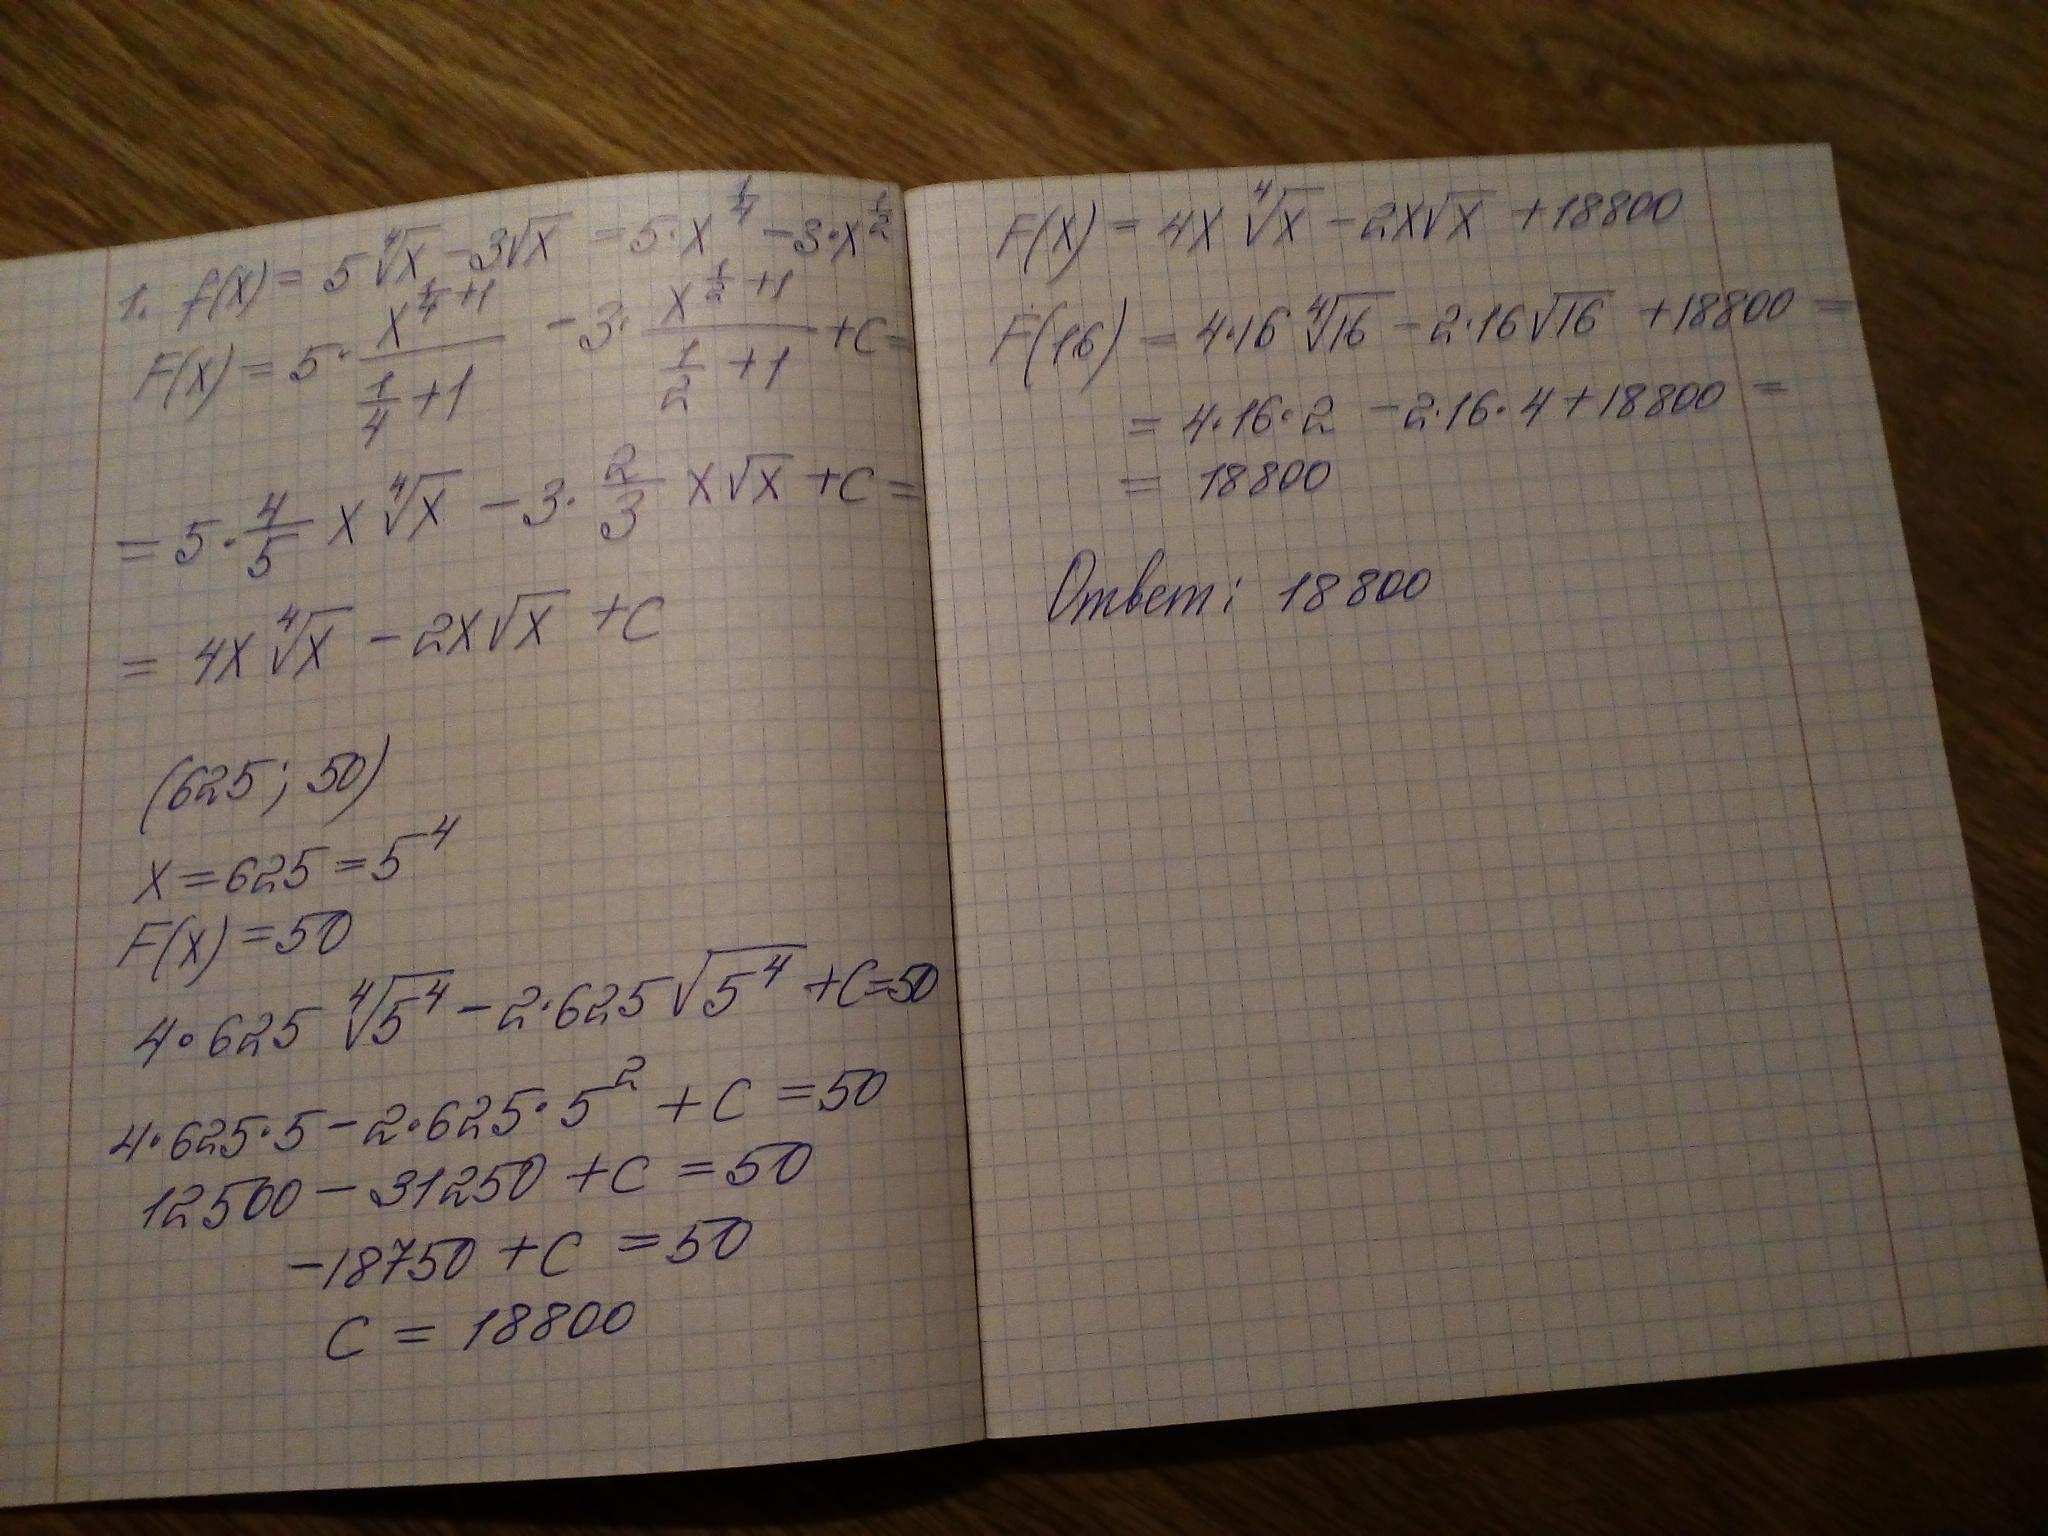 1. f(x) = 5∜x - 3√x = 5·x^(1/4) - 3·x^(1/2)
F(x) = 5· x^(1/4+1)/(1/4+1) - 3· x^(1/2+1)/(1/2+1) + C =
= 5· 4/5 x∜x - 3· 2/3 x√x + C =
= 4x∜x - 2x√x + C
(625; 50)
x = 625 = 5^4
F(x) = 50
4·625 ∜(5^4) - 2·625√(5^4) + C = 50
4·625·5 - 2·625·5^2 + C = 50
12500 - 31250 + C = 50
-18750 + C = 50
C = 18800
F(x) = 4x∜x - 2x√x + 18800
F(16) = 4·16∜16 - 2·16√16 + 18800 =
= 4·16·2 - 2·16·4 + 18800 =
= 18800
Ответ: 18800